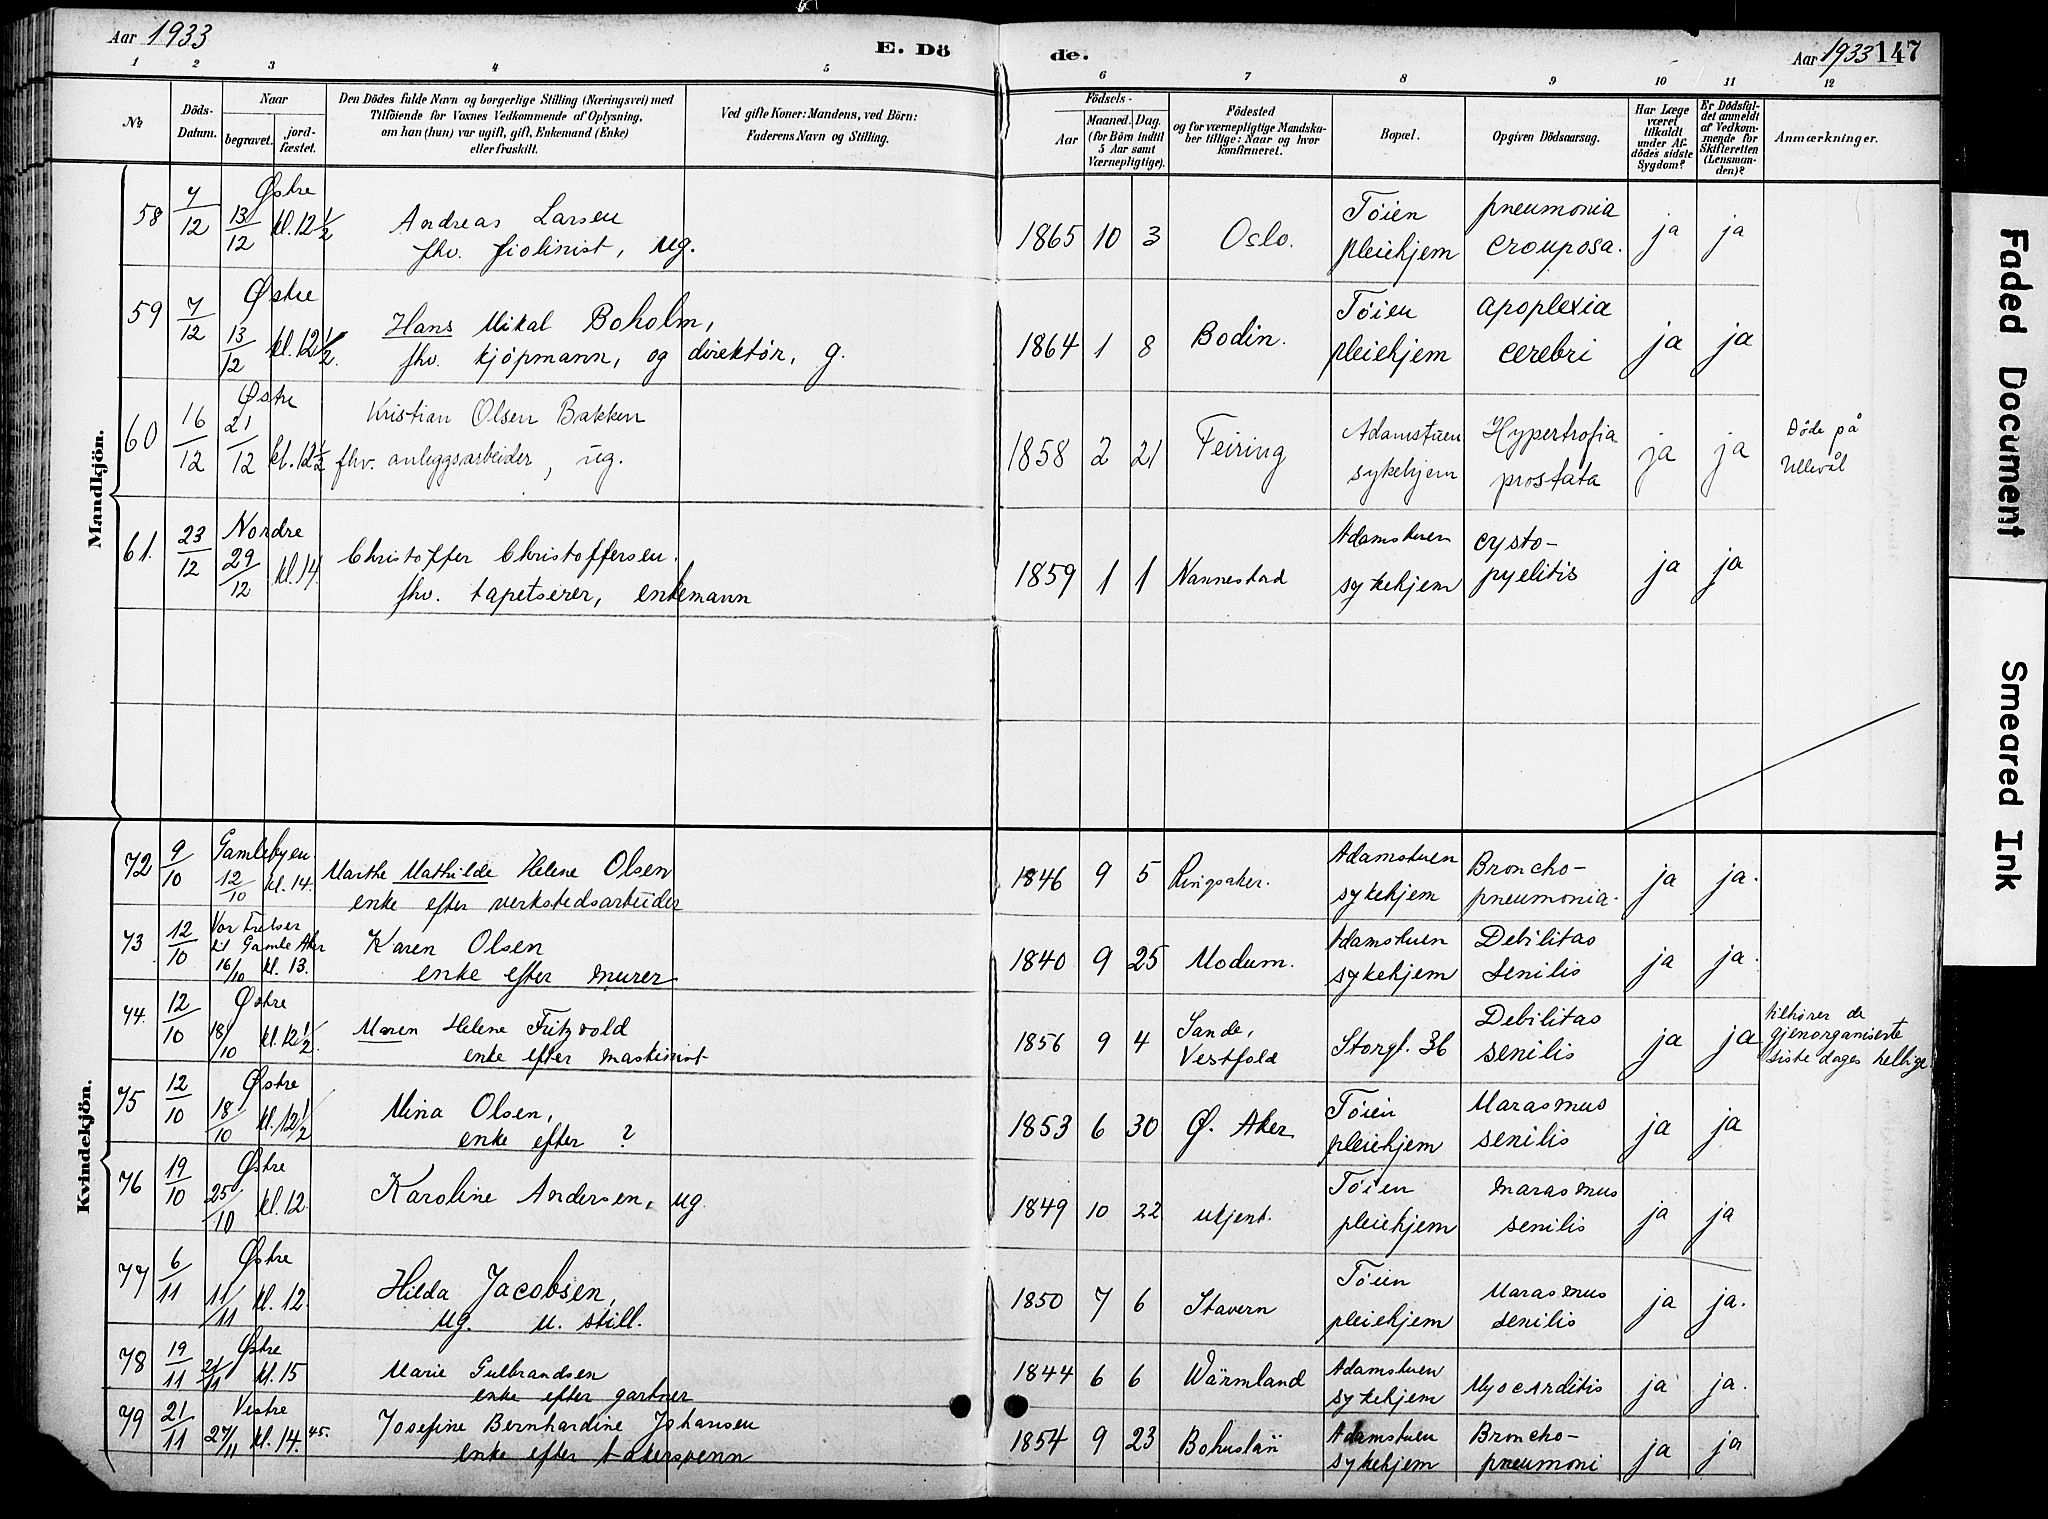 Aar 1933
E. Dö
de.
Aar 1933 147
1 2 3 4 5 6 7 8 9 10 11 12
№
Döds-
Datum.
Naar
begravet.
jord-
fæstet.
Den Dödes fulde Navn og borgerlige Stilling (Næringsvei) med
Tilföiende for Voxnes Vedkommende af Oplysning,
om han (hun) var ugift, gift, Enkemand (Enke)
eller fraskilt.
Ved gifte Koner: Mandens, ved Börn:
Faderens Navn og Stilling.
Födsels-
Aar
Maaned. Dag.
(for Börn indtil
5 Aar samt
Værnepligtige).
Födested
og for værnepligtige Mandska-
ber tillige: Naar og hvor
konfirmeret.
Bopæl.
Opgiven Dödsaarsag.
Har Læge
været
tilkaldt
under Af-
dödes sidste
Sygdom?
Er Dödsfal-
det anmeldt
af Vedkom-
mende for
Skifteretten
(Lensman-
den)?
Anmærkninger.
Mandkjön.
58 7/12 Østre 13/12 kl. 12 1/2
Andreas Larsen
fhv. fiolinist, ug.
1865 10 3 Oslo.
Tøien
pleiehjem
pneumonia
crouposa.
ja ja
59 7/12 Østre 13/12 kl. 12 1/2.
Hans Mikal Boholm,
fhv. kjøpmann, og direktør, g.
1864 1 8 Bodin.
Tøien
pleiehjem
apoplexia
cerebri
ja ja
60 16/12 Østre 21/12 kl. 12 1/2
Kristian Olsen Bakken
fhv. anleggsarbeider, ug.
1858 2 21 Feiring
Adamstuen
sykehjem
Hypertrofia
prostata
ja ja
Døde på
Ullevål
61. 23/12 Nordre 29/12 kl. 14.
Christoffer Christoffersen.
fhv. tapetserer, enkemann
1859 1 1 Nannestad
Adamstuen
sykehjem
cysto-
pyelitis
ja ja
Kvindekjön.
72 9/10 Gamlebyen. 12/10 kl. 14.
Marthe Mathilde Helene Olsen
enke efter verkstedsarbeider
1846 9 5 Ringsaker.
Adamstuen
sykehjem
Broncho-
pneumonia.
ja ja.
73 12/10 Vor Frelser
til Gamle Aker
16/10 kl. 13.
Karen Olsen
enke efter murer
1840 9 25 Modum.
Adamstuen
sykehjem
Debilitas
senilis
ja ja.
74. 12/10 Østre 18/10 kl. 12 1/2.
Maren Helene Fritzvold
enke efter maskinist
1856 9 4 Sande,
Vestfold
Storgt. 36
Debilitas
senilis
ja ja
tilhører de
gjenorganiserte
siste dages hellige.
75 12/10 Østre 18/10 kl. 12 1/2
Mina Olsen,
enke efter ?
1853 6 30 Ø. Aker
Tøien
pleiehjem
Marasmus
senilis
ja ja
76 19/10 Østre 25/10 kl. 12.
Karoline Andersen, ug.
1849 10 22 ukjent.
Tøien
pleiehjem
marasmus
senilis
ja ja
77 6/11 Østre 11/11 kl. 12.
Hilda Jacobsen,
ug. u. still.
1850 7 6 Stavern
Tøien
pleiehjem
Marasmus
senilis
ja ja.
78 19/11 Østre 21/11 kl. 15
Marie Gulbrandsen
enke efter gartner
1844 6 6 Wärmland
Adamstuen
sykehjem
Myocarditis
ja ja.
79 21/11 Vestre 27/11 kl. 14. 45.
Josefine Bernhardine Johansen
enke efter takersvenn
1854 9 23 Bohuslän
Adamstuen
sykehjem
Broncho-
pneumoni
ja ja
Faded Document
Smeared Ink